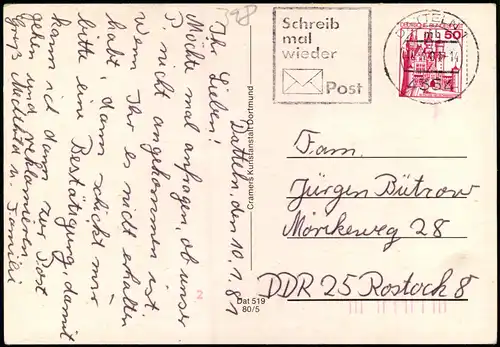 Datteln, den 10.1.81
Ihr Lieben!
Möchte mal anfragen, ob unser
nicht angekommen ist.
Wenn Ihr es nicht erhalten
habt, dann schickt mir
bitte eine Bestätigung, damit
kann ich dann zur Post
gehen und reklamieren.
Gruß Mechthild u. Familie
Cramers Kunstanstalt Dortmund
Dat 519
80/5
Schreib
mal
wieder
Post
50
Fam.
Jürgen Bützow
Mörikeweg 28
DDR 25 Rostock 8